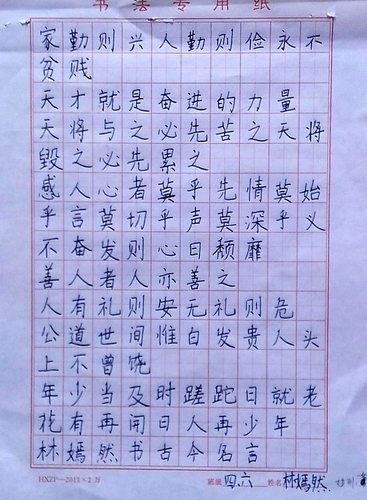 书法专用纸
家勤则兴人勤则俭永不
贫贱
天才就是奋进的力量
天将与之必先苦之天将
毁之必先累之
感人心者莫乎先情莫始
乎言莫切乎声莫深乎义
不奋发则心日颓靡
善人者人亦善之
人有礼则安无礼则危
公道世间惟白发贵人头
上不曾饶
年少当及时蹉跎日就老
花有再开日人再少年
林嫣然书古今名言
HXZP—2011×2万 班级 四.六 姓名 林嫣然